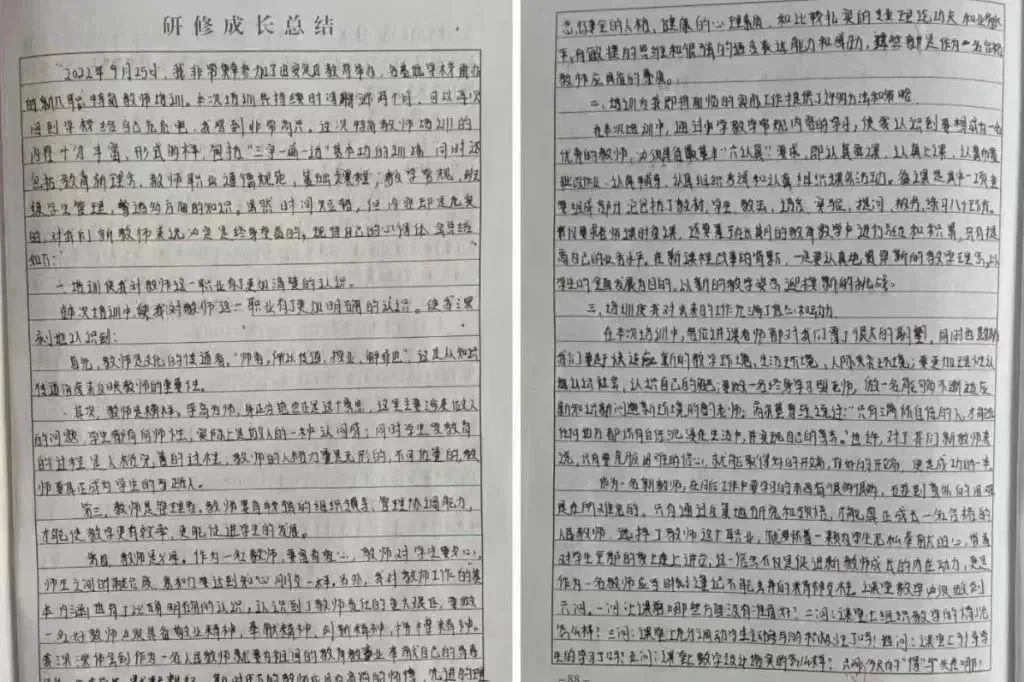 研修成长总结
"2022年9月25日,我非常荣幸参加了由安定区教育举办,各基地学校承办
的新入职特岗教师培训。本次培训共持续时间 两个月,可以再次
回到学校给自己充充电,我感到非常高兴。这次特岗教师培训的
内容十分丰富,形式多样,包括"三字一画一话"基本功的训练,同时还
包括教育新理念、教师职业道德规范,基础课程;教学常规,班
级学生管理,普通 多方面的知识。虽然时间短暂,但 却是充实
的,对我们新教师来说 是终身受益的,现将自己的心得体会总结
如下:
一、培训使我对教师这一职业有了更加清楚的认识。
在本次培训中,使我对教师这一职业有了更加明确的认识。使我深
刻地认识到:
首先,教师是文化的传道者。"师者,所以传道、授业、解惑也",这是从知识
传道角度来反映教师的重要性。
其次,教师是榜样。学高为师,身正为范也正是这个意思,这里主要 是做人
的问题,学生都有向师性,实际上是做人的一种认同感;同时学生受教育
的过程是人格完善的过程,教师的人格力量是无形的,不可估量的,教
师要真正成为学生的引路人。
第三,教师是管理者。教师要有较强的组织领导、管理协调能力,
才能使教学更有效率,更能促进学生的发展。
第四,教师是父母。作为一名教师,要富有爱心,教师对学生要关心,
师生之间的融合度、亲和力要达到知心朋友一样。另外,我对教师工作的基
本内涵也有了比较明确的认识,认识到了教师责任的重大深远,要做
一名好教师必须具备敬业精神,奉献精神,创新精神,拼搏精神。
我深深体会到作为一名人民教师就要为祖国的教育教学事业奉献自己的青春
念,健全的人格,健康的心理素质,和比较扎实的专业理论功夫和业务水
平,有敏捷的思维和很强的语言表达能力和 ,这些都是作为一名合格
教师应具备的素质。
二、培训为我即将面临的实际工作提供了许多方法和策略
在本次培训中,通过中学教学常规内容的学习,使我认识到要想成为一名
优秀的教师,必须具备最基本"六认真"要求,即认真备课,认真上课,认真布置
批改作业,认真辅导,认真组织考试和认真组织课外活动。备课是其中一项重
要组成部分,它包括了教材、学生、教法、语言、实验、提问、板书、练习八个环节。
我们要备好课时备课,还要善于在长期的教育教学中进行总结和积累,只有提
高自己的业务水平。在新课程改革的背景下,一定要认真地贯穿新的教学理念,以
学生的全面发展为目的,以新的教学姿态迎接新的挑战。
三、培训使我对未来的工作充满了信心和动力。
在本次培训中,每位讲课老师都对我们寄予了很大的期望,同时也要求
我们要赶快适应新的教学环境、生活环境、人际关系环境;要更加理性认
认识社会,认识自己的职责;要做一名终身学习型老师,做一名能够不断适应
新知识新问题新环境的新老师。高尔基曾经说过:"只有满怀自信的人,才能在
任何地方都怀有自信沉浸在生活中,并实现自己的意志。"也许,对于我们新教师来
说,只有要克服困难的信心,就能取得好的开端,良好的开端,便是成功的一半。
作为一名新教师,在日后工作中要学习的东西有很多很多,也遇到意外的困难
是在所难免的。只有通过反复地研究和领悟,才能真正成长一名合格的
人民教师。选择了教师这个职业,就要怀着一颗为学生无私奉献的心,带着
对学生全部的爱走上讲台,这一信念不仅是促进新教师成长的内在动力,更是
作为一名教师应当时刻谨记不能丢弃的教育教学准绳。课堂教学必须做到
六问。一问:上课前哪些方面没有准备好?二问:课堂上组织教学的情况
怎么样?三问:课堂上充分调动学生主动参与的积极性了吗?四问:课堂上引导学
生的学习了吗?五问:课堂上教学设计落实的怎么样?六问:今天的"得"与失是哪?
-88-